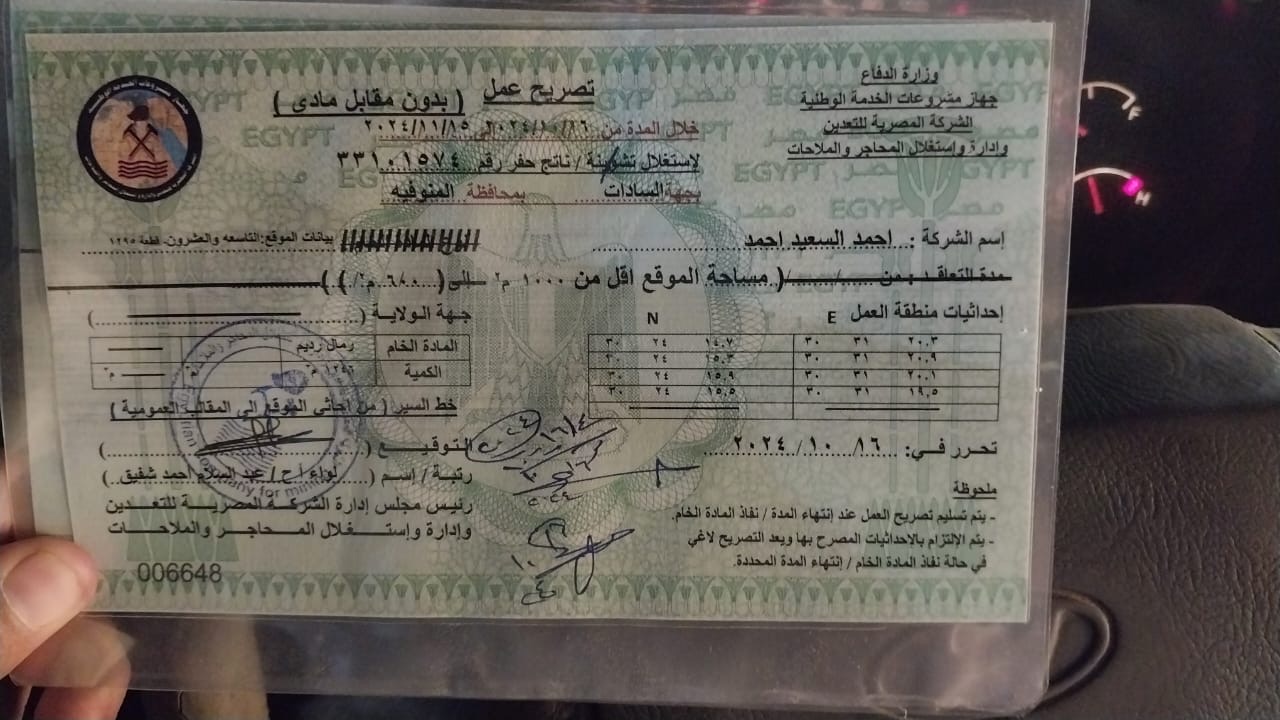 وزارة الدفاع
جهاز مشروعات الخدمة الوطنية
الشركة المصرية للتعدين
وإدارة وإستغلال المحاجر والملاحات
تصريح عمل ( بدون مقابل مادى )
خلال المدة من ٢٠٢٤/١٠/١٦ إلى ٢٠٢٤/١١/١٥
لإستغلال تشوينة / ناتج حفر رقم ٣٣١٠١٥٧٤
بجهة السادات بمحافظة المنوفيه
إسم الشركة : احمد السعيد احمد
بيانات الموقع: التاسعه والعشرون- قطعة ١٢٩٥
مدة التعاقد : من ..../..../.... ( مساحة الموقع اقل من ١٠٠٠ م٢ إلى ( ٦٤٠ م٢ ) )
إحداثيات منطقة العمل E N
٢٠.٣ ٣١ ٣٠ ١٤.٧ ٢٤ ٣٠
٢٠.٩ ٣١ ٣٠ ١٥.٣ ٢٤ ٣٠
٢٠.١ ٣١ ٣٠ ١٥.٩ ٢٤ ٣٠
١٩.٥ ٣١ ٣٠ ١٥.٥ ٢٤ ٣٠
جهة الولاية ( )
المادة الخام رمال رديم
الكمية ١٢٤٦ م٣ م٣
خط السير ( من إحداثى الموقع إلى المقالب العمومية )
تحرر في: ١٦ / ١٠ / ٢٠٢٤
التوقيع ( )
رتبة / إسم ( لواء أ ح / عبد السلام احمد شفيق )
رئيس مجلس إدارة الشركة المصرية للتعدين
وإدارة وإستغلال المحاجر والملاحات
ملحوظة
- يتم تسليم تصريح العمل عند إنتهاء المدة / نفاذ المادة الخام.
- يتم الإلتزام بالإحداثيات المصرح بها ويعد التصريح لاغي
في حالة نفاذ المادة الخام / إنتهاء المدة المحددة.
006648
EGYPT
مصر
H